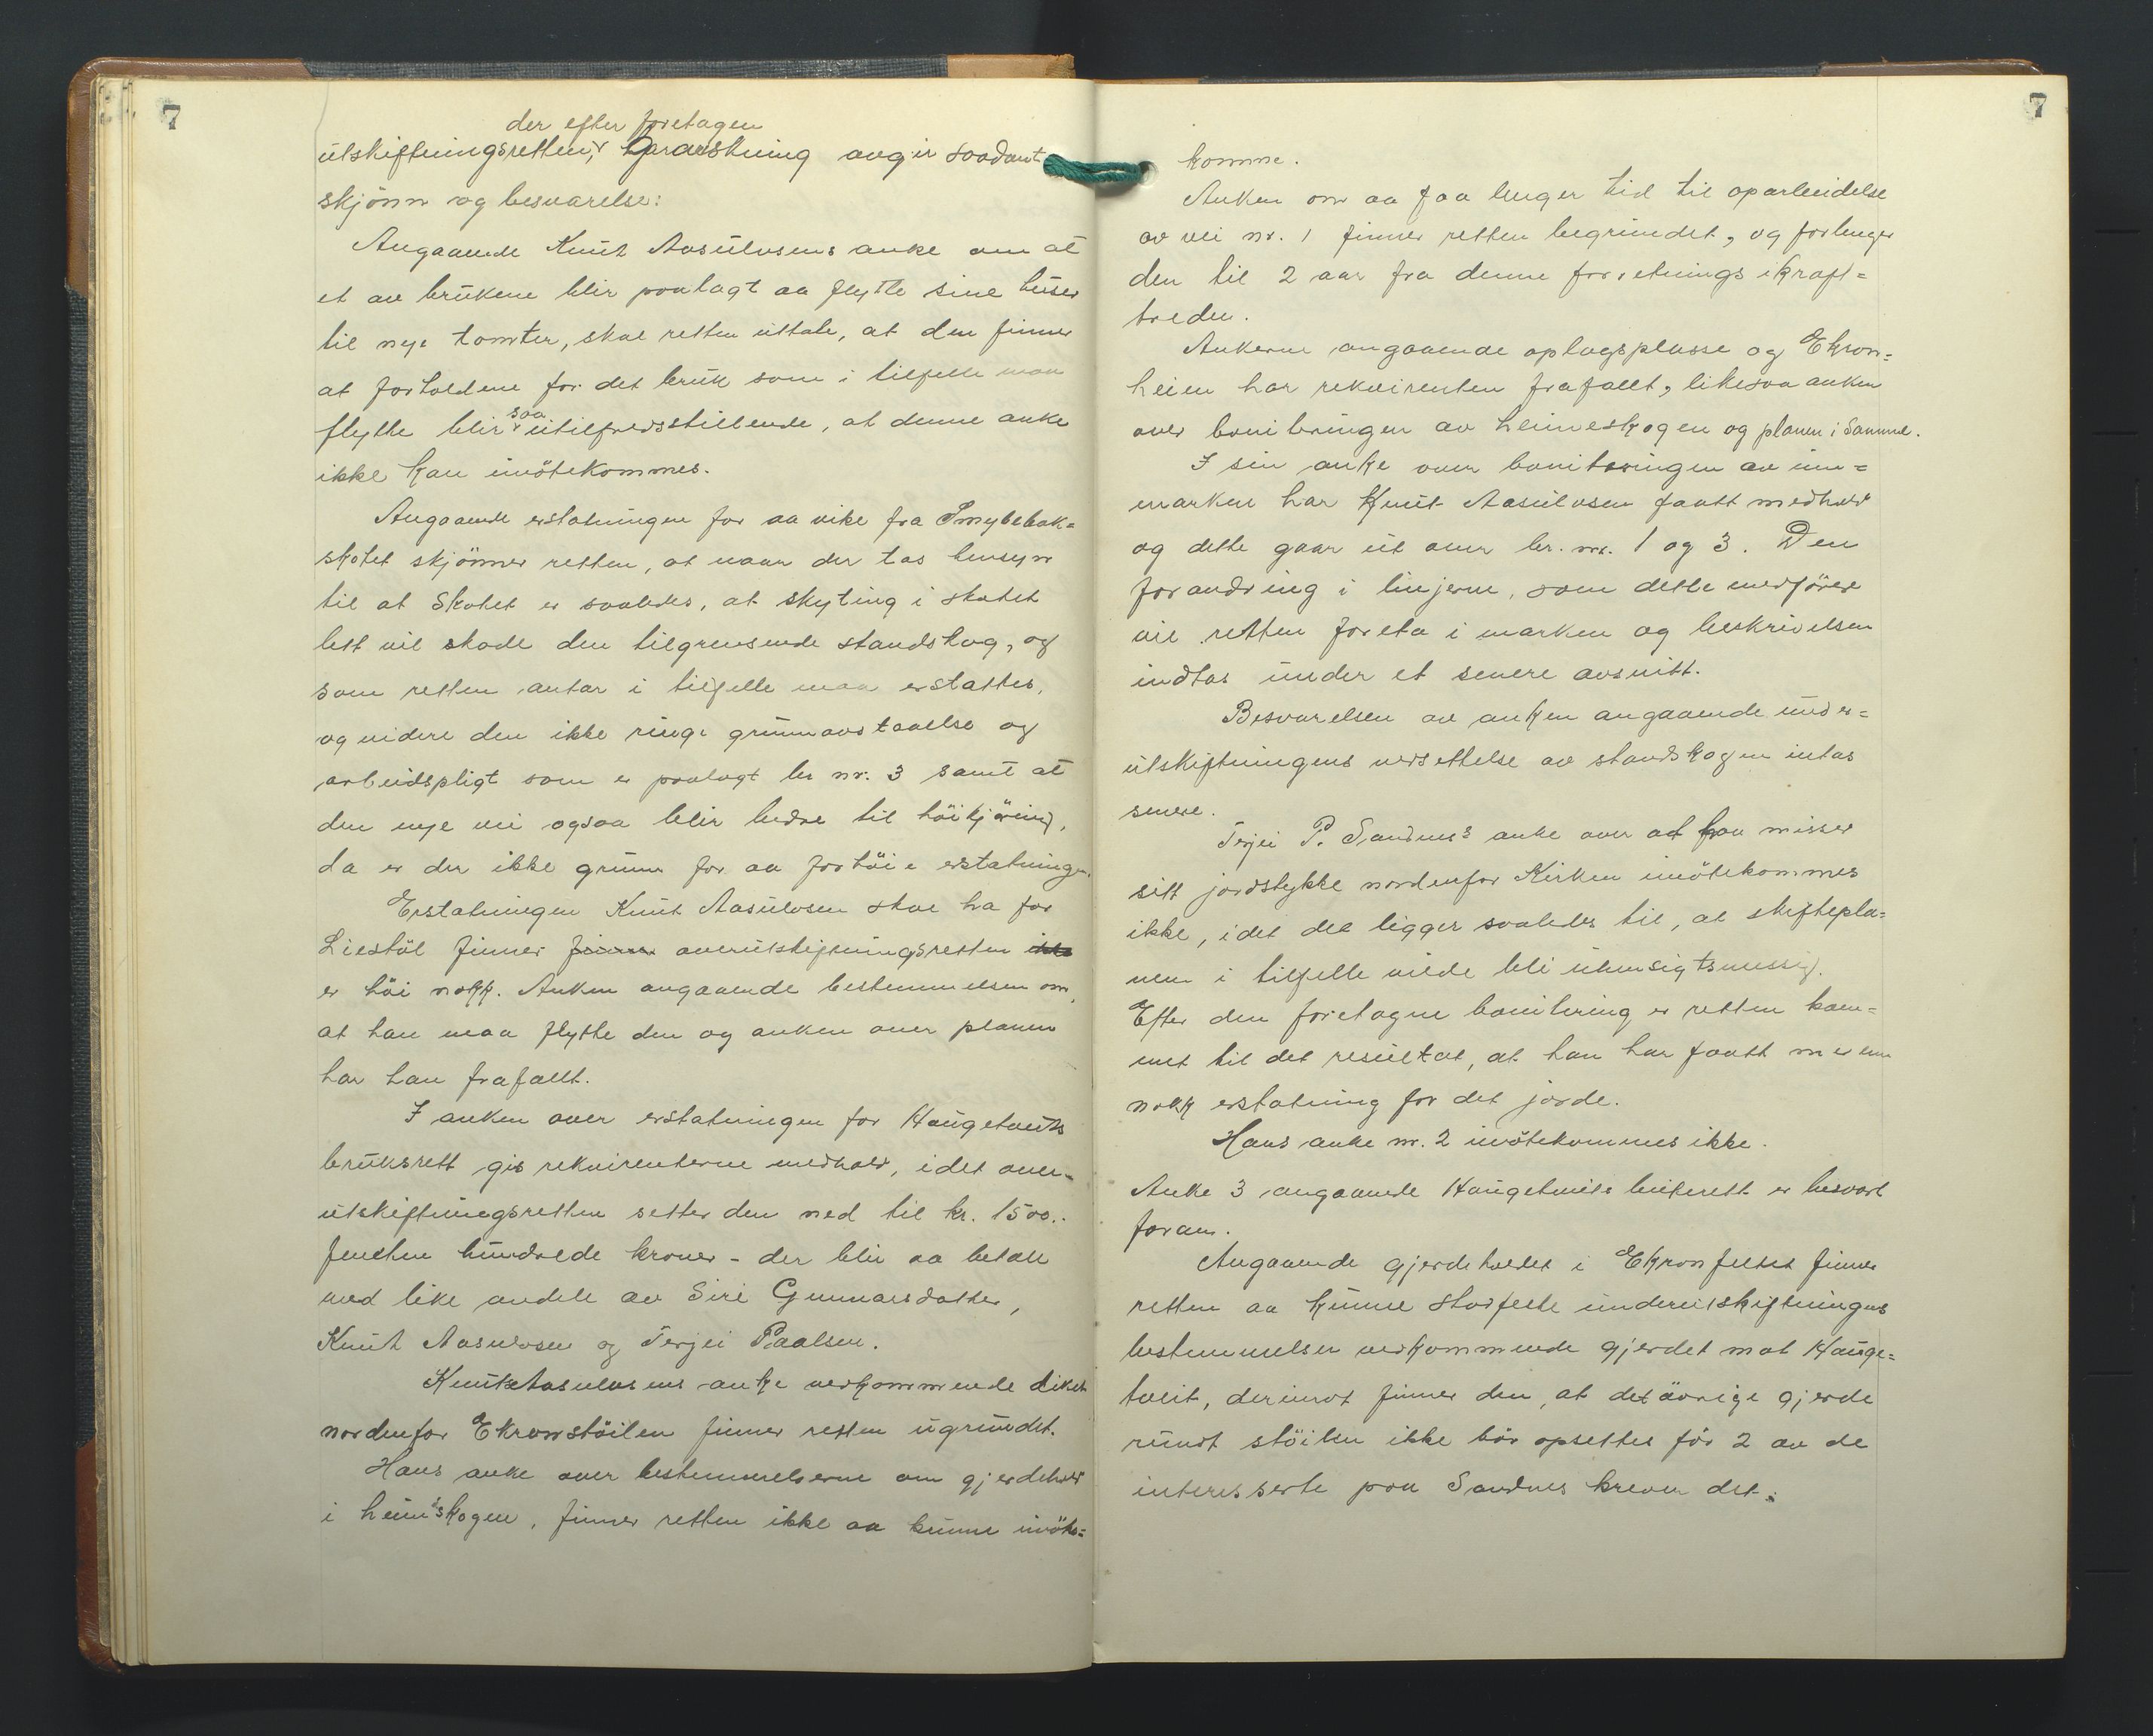 7
der efter foretagen
utskiftningsretten, granskning avgir saadant
skjönn og besvarelse:
Angaaende Knut Aasulvsens anke om at
et av brukene blir paalagt aa flytte sine huser
til nye tomter, skal retten uttale, at den finner
at forholdene for det bruk som i tilfelle maa
flytte blir saa utilfredsstillende, at denne anke
ikke kan imötekommes.
Angaaende erstatningen for aa vike fra Smylebak=
skotet skjönner retten, at naar der tas hensyn
til at Skotet er saaledes, at skyting i skotet
lett vil skade den tilgrensende standskog, og
som retten antar i tilfelle maa erstattes,
og videre den ikke ringe grunnavstaaelse og
arbeidspligt som er paalagt br nr. 3 samt at
den nye vei ogsaa blir bedre til höikjöring,
da er der ikke grunn for aa forhöie erstatningen.
Erstatningen Knut Aasulvsen skal ha for
Liestöl finner finner overutskiftningsretten ikke
er höi nokk. Anken angaaende bestemmelsen om,
at han maa flytte den og anken over planen
har han frafallt.
I anken over erstatningen for Haugetveits
bruksrett gis rekvirenterne medhold, idet over-
utskiftningsretten setter den ned til kr. 1500.-
femten hundrede kroner - der blir aa betale
med like andele av Siri Gunnarsdatter,
Knut Aasulvsen og Terjei Paalsen.
Knut Aasulvsens anke vedkommende diket
nordenfor Ekronstöilen finner retten ugrundet.
Hans anke over bestemmelserne om gjerdehold
i heimeskogen, finner retten ikke aa kunne imöte=
7
komme.
Anken om aa faa lenger tid til oparbeidelse
av vei nr. 1 finner retten begrundet, og forlenger
den til 2 aar fra denne forretnings ikraft=
treden.
Ankerne angaaende oplagsplasse og Ekron=
heien har rekvirenten frafallt, likesaa anken
over boniteringen av heimeskogen og planen i Samme.
I sin anke over boniteringen av inn=
marken har Knut Aasulvsen faatt medhold
og dette gaar ut over br. nr. 1 og 3. Den
forandring i linjerne, som dette medförer
vil retten foreta i marken og beskrivelsen
indtas under et senere avsnitt.
Besvarelsen av anken angaaende under=
utskiftningens verdsettelse av standskogen intas
senere.
Terjei P. Sandnes anke over at han misser
sitt jordstykke nordenfor Kirken imötekommes
ikke, idet det ligger saaledes til, at skiftepla=
nen i tilfelle vilde bli uhensigtsmessig.
Efter den foretagne bonitering er retten kom=
met til det resultat, at han har faatt mer enn
nokk erstatning for det jorde.
Hans anke nr. 2 imötekommes ikke.
Anke 3 angaaende Haugetveits beiterett er besvart
foran.
Angaaende gjerdeholdet i Ekronfeltet finner
retten aa kunne stadfeste underutskiftningens
bestemmelser vedkommende gjerdet mot Hauge=
tveit, derimot finner den, at det övrige gjerde
rundt stöilen ikke bör opsettes för 2 av de
interesserte paa Sandnes krever det.